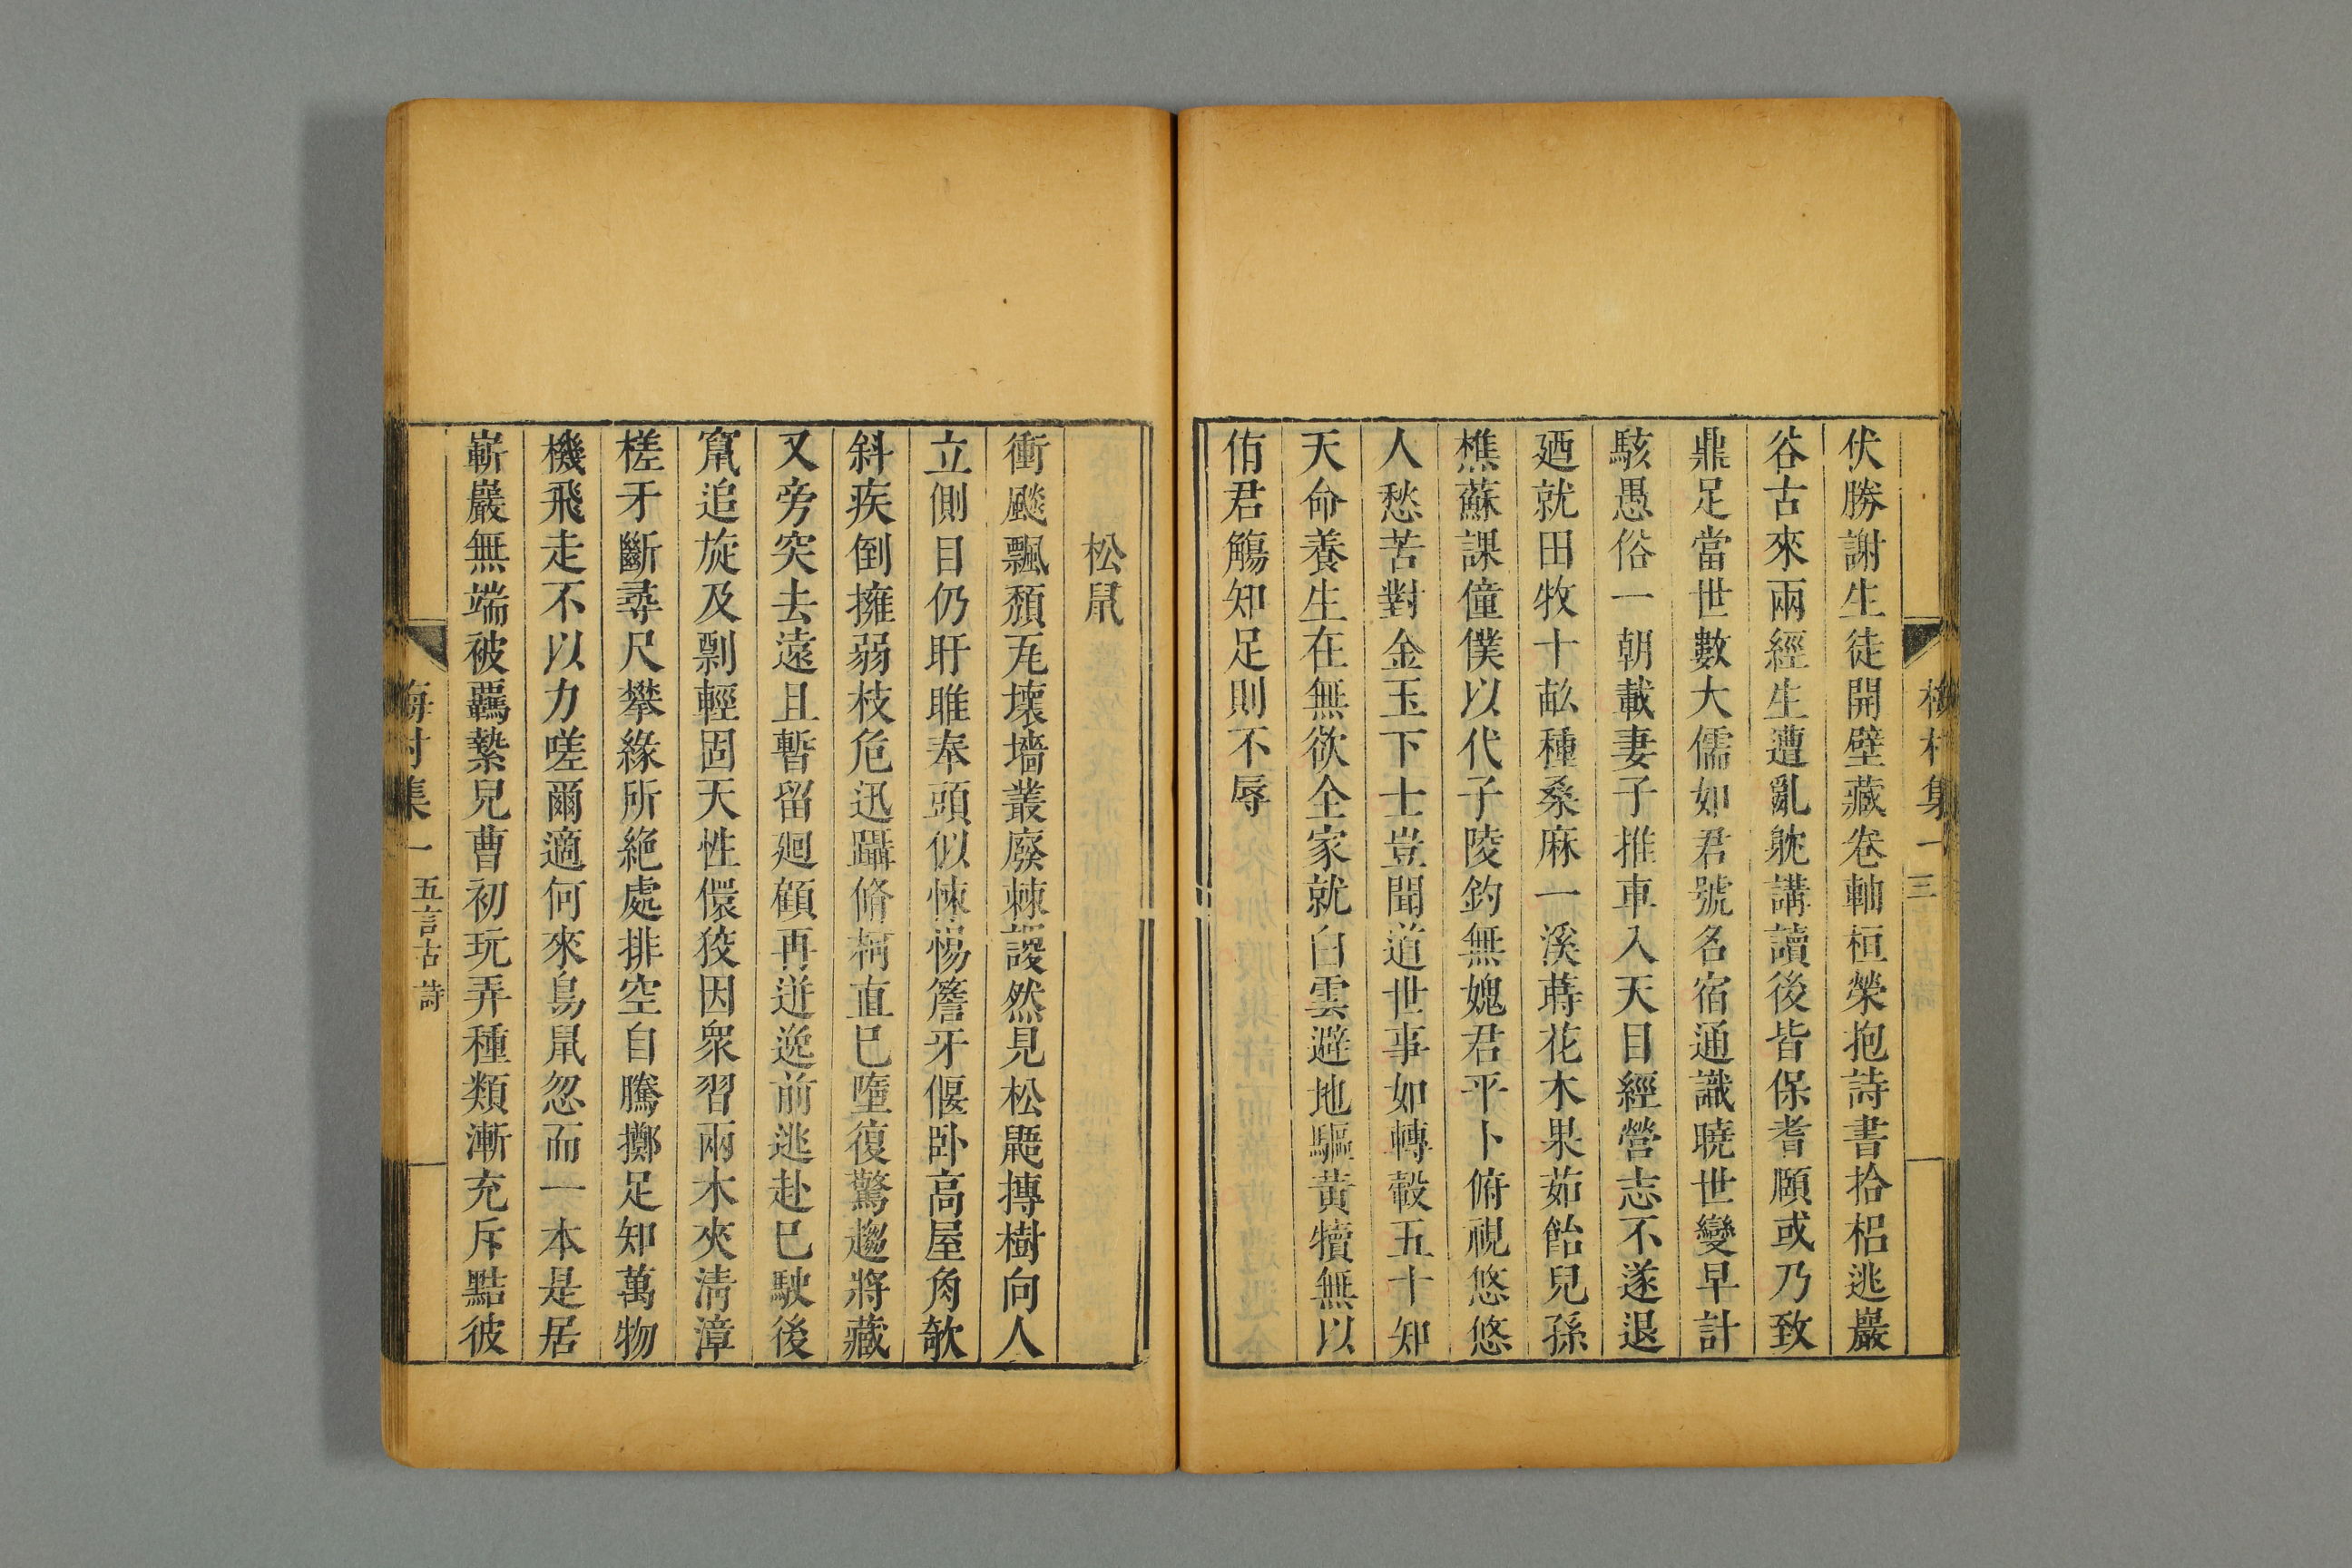 梅村集 一 三
伏勝謝生徒開壁藏卷軸桓榮抱詩書拾梠逃巖
谷古來兩經生遭亂躭講讀後皆保耆頤或乃致
鼎足當世數大儒如君號名宿通識曉世變早計
駭愚俗一朝載妻子推車入天目經營志不遂退
廼就田牧十畝種桑麻一溪蒔花木果茹飴兒孫
樵蘇課僮僕以代子陵釣無媿君平卜俯視悠悠
人愁苦對金玉下士豈聞道世事如轉轂五十知
天命養生在無欲全家就白雲避地驅黃犢無以
侑君觴知足則不辱
松鼠
衝飈飄頹瓦壞墻叢廢棘謖然見松鼯搏樹向人
立側目仍盱睢奉頭似悚惕簷牙偃卧高屋角欹
斜疾倒擁弱枝危迅躡脩柯直已墮復驚趨將藏
又旁突去遠且暫留廻顧再迸逸前逃赴已駛後
竄追旋及剽輕固天性儇狡因衆習兩木夾清漳
槎牙斷尋尺攀緣所絶處排空自騰擲足知萬物
機飛走不以力嗟爾適何來鳥鼠忽而一本是居
嶄巖無端被羈縶兒曹初玩弄種類漸充斥黠彼
梅村集 一 五言古詩